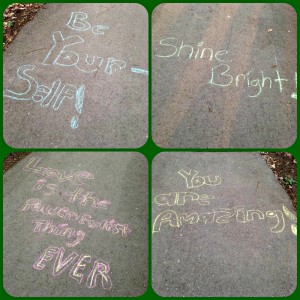 Be
Your-
Self!
Shine
Bright!
Love
is the
Powerfulist
thing
EVER
You
are
Amazing!